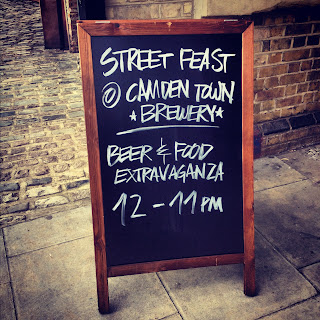 STREET FEAST
@ CAMDEN TOWN
★BREWERY★
BEER & FOOD
EXTRAVAGANZA
12-11PM